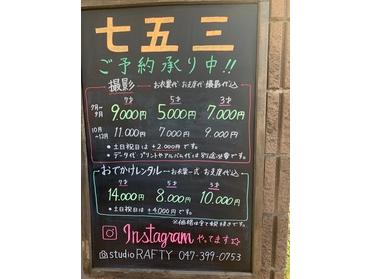 七五三
ご予約承り中!!
撮影 お衣裳代 お支度代 撮影代込
7才 5才 3才
7月〜9月 9,000円 5,000円 7,000円
10月〜12月 11,000円 7,000円 9,000円
●土日祝日は+2,000円です。
●データ代・プリントやアルバム代は別途必要です。
おでかけレンタル お衣裳一式 お支度代込
7才 5才 3才
14,000円 8,000円 10,000円
●土日祝日は+4,000円です。
※価格は全て税抜きです。
Instagram やってます☆
studio RAFTY 047-399-0753